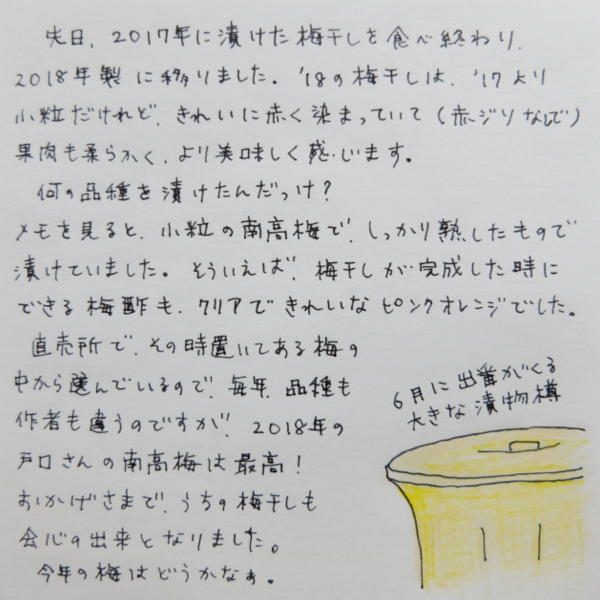 先日、2017年に漬けた梅干しを食べ終わり、
2018年製に移りました。'18の梅干しは、'17より
小粒だけれど、きれいに赤く染まっていて(赤ジソなしで)
果肉も柔らかく、より美味しく感じます。
何の品種を漬けたんだっけ?
メモを見ると、小粒の南高梅で、しっかり熟したもので
漬けていました。そういえば、梅干しが完成した時に
できる梅酢も、クリアできれいなピンクオレンジでした。
直売所で、その時置いてある梅の
中から選んでいるので、毎年、品種も
作者も違うのですが、2018年の
戸口さんの南高梅は最高!
おかげさまで、うちの梅干しも
会心の出来となりました。
今年の梅はどうかなぁ。
6月に出番がくる
大きな漬物樽